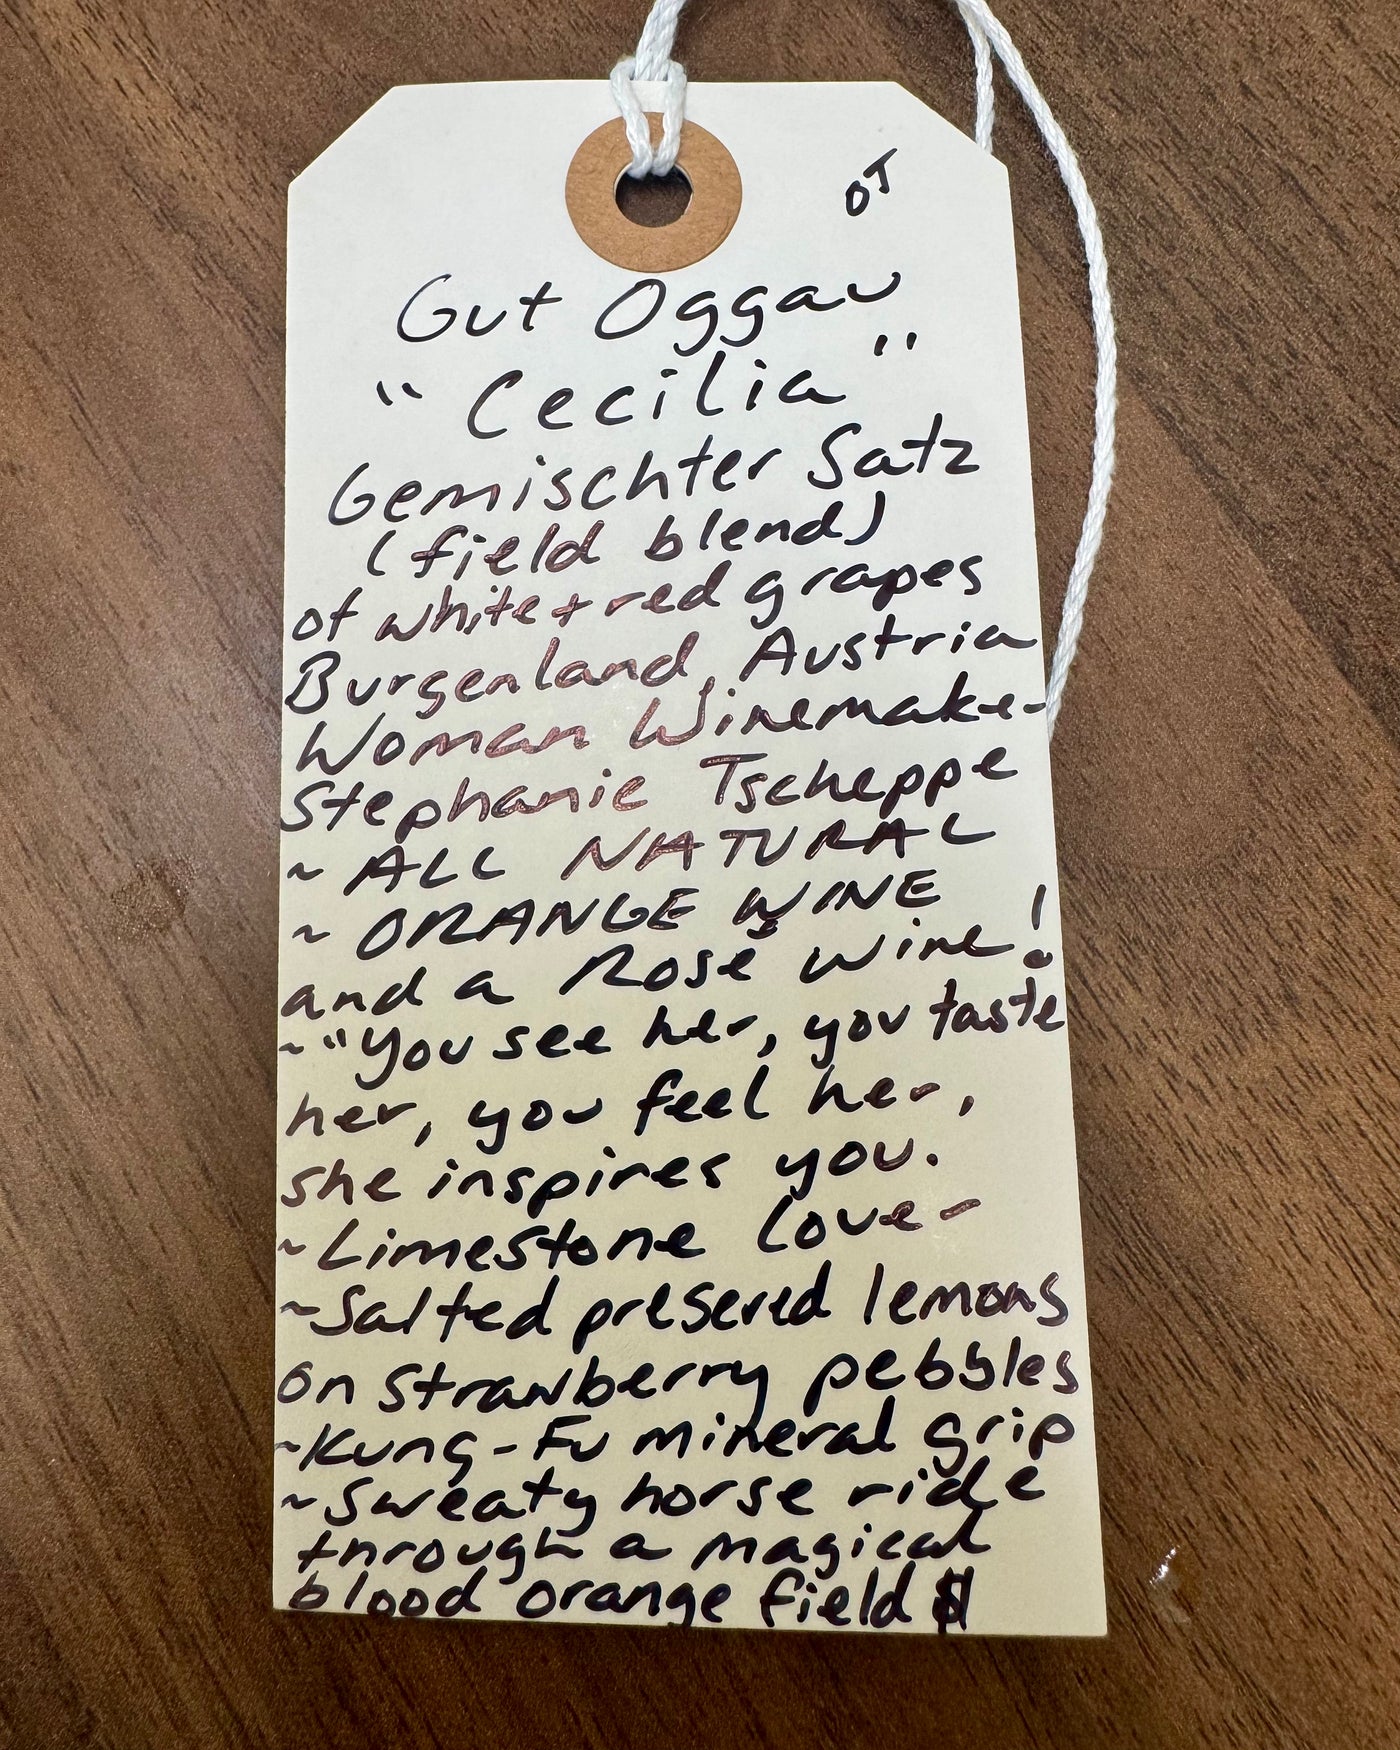 OT
Gut Oggau
"Cecilia"
Gemischter Satz
(field blend)
of white + red grapes
Burgenland, Austria
Woman Winemaker
Stephanie Tscheppe
~ ALL NATURAL
~ ORANGE WINE
and a Rosé wine!
~ "You see her, you taste
her, you feel her,
she inspires you.
~ Limestone Lover
~ Salted preserved lemons
on strawberry pebbles
~ Kung-Fu mineral grip
~ Sweaty horse ride
through a magical
blood orange field